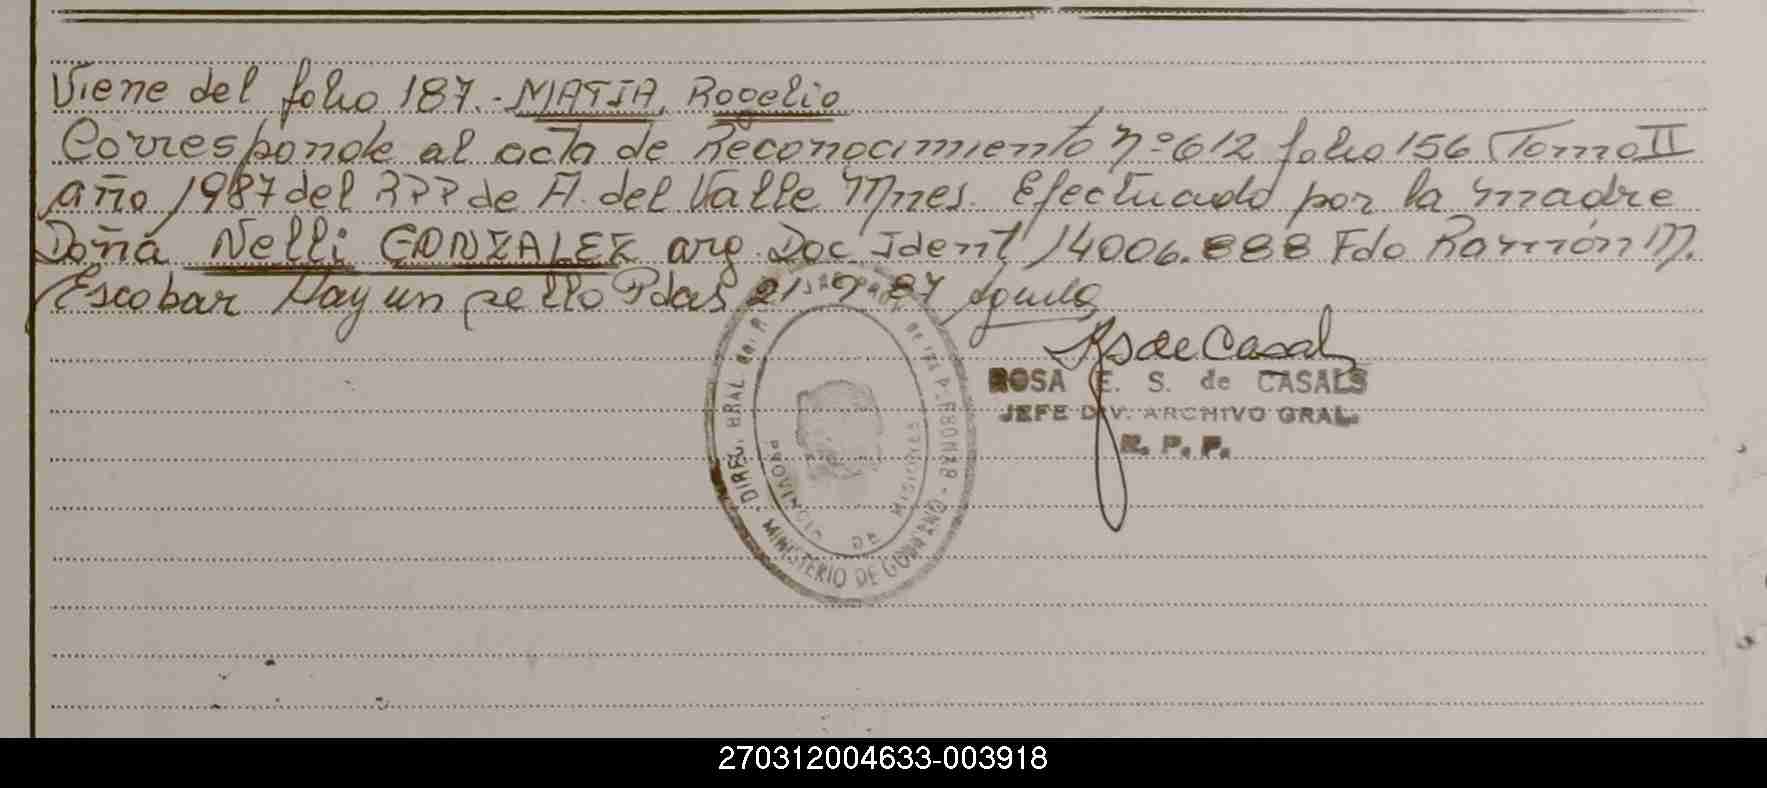 Viene del folio 187.- MATIA, Rogelio
Corresponde al acta de Reconocimiento nº 612 folio 156 Tomo II
año 1987 del RPP de A. del Valle Mnes. Efectuado por la madre
Doña Nelli GONZALEZ arg. Doc Ident 14006.888 Fdo Ramón M.
Escobar Hay un sello Pdas 21 9 87
RsdeCasals
ROSA E. S. de CASALS
JEFE DIV. ARCHIVO GRAL.
R. P. P.
DIREC. GRAL. del R. DE LAS PERSONAS - MINISTERIO DE GOBIERNO
PROVINCIA DE MISIONES
270312004633-003918